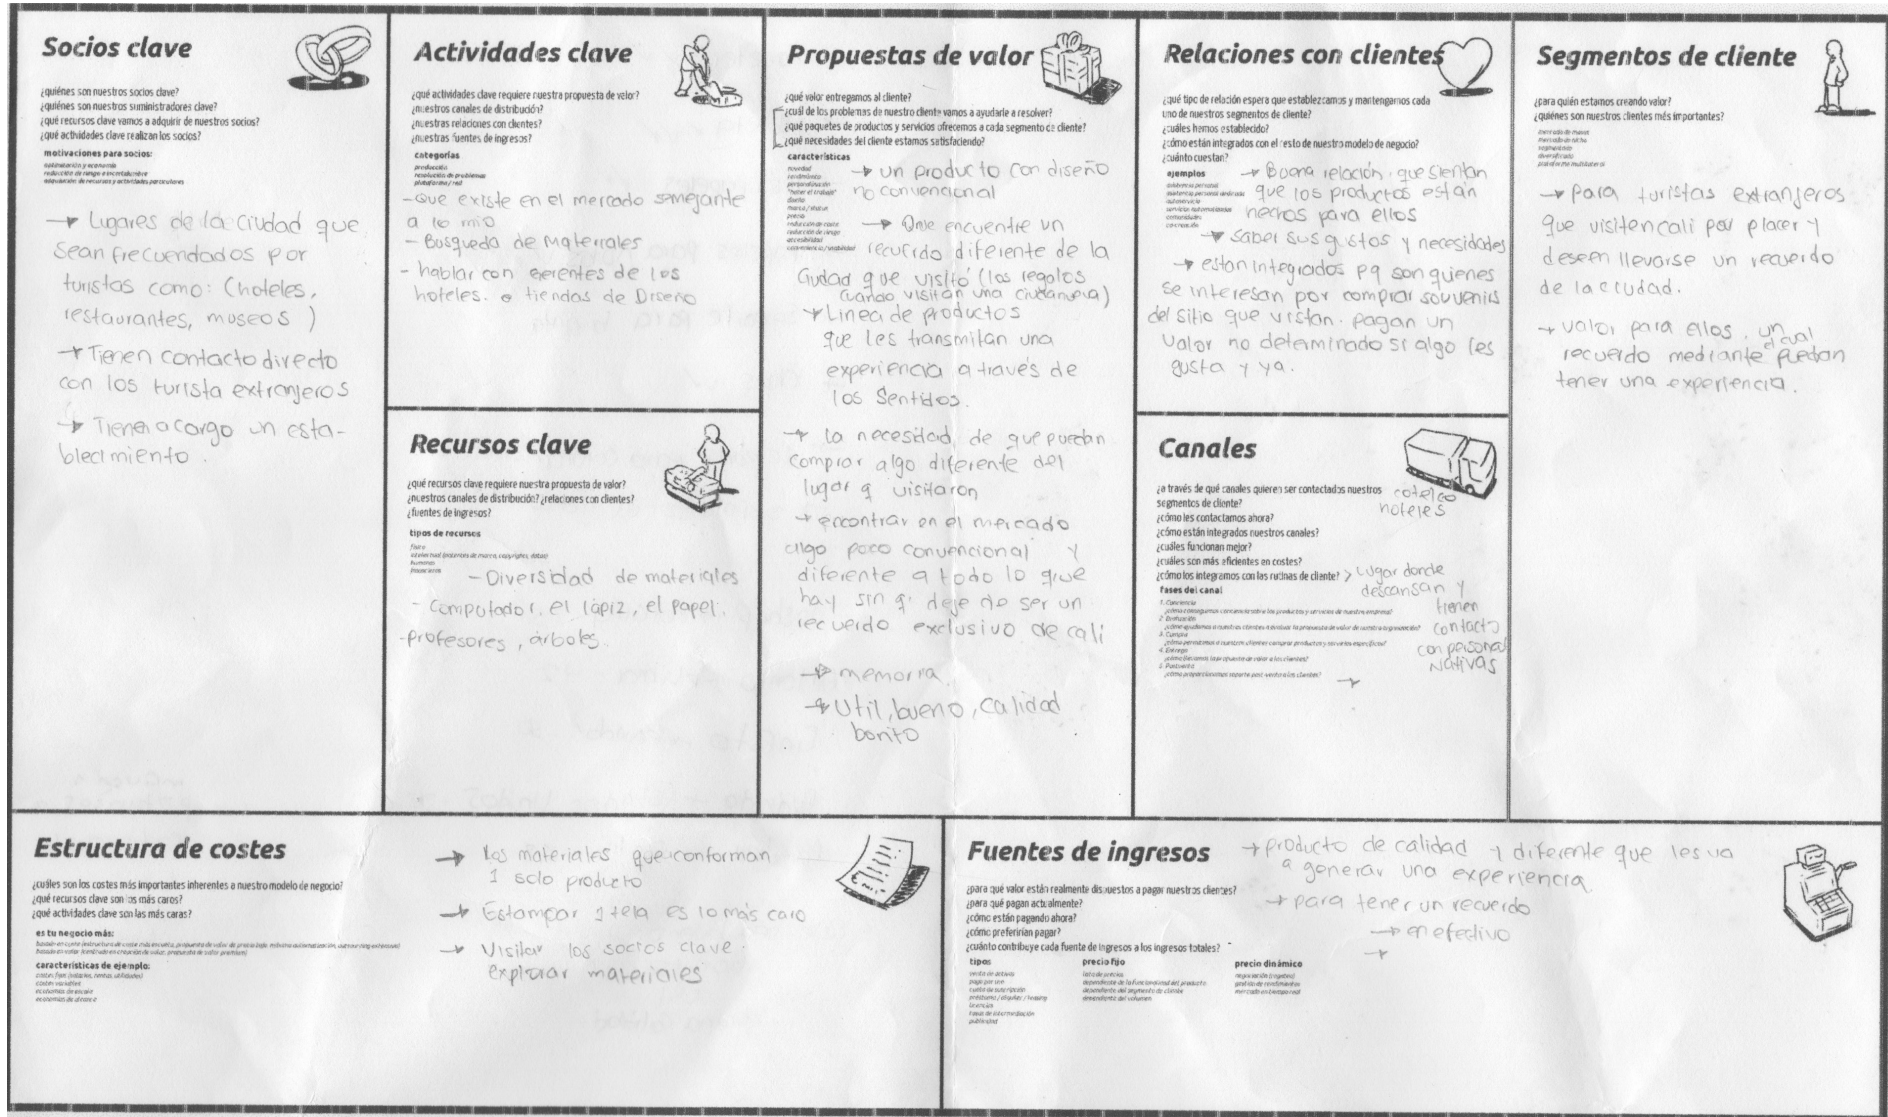 Socios clave
¿quiénes son nuestros socios clave?
¿quiénes son nuestros suministradores clave?
¿qué recursos clave vamos a adquirir de nuestros socios?
¿qué actividades clave realizan los socios?
motivaciones para socios:
optimización y economía
reducción de riesgo e incertidumbre
adquisición de recursos y actividades particulares
→ Lugares de la ciudad que
sean frecuendados por
turistas como: (hoteles,
restaurantes, museos)
→ Tienen contacto directo
con los turista extranjeros
→ Tienen a cargo un esta-
blecimiento.
Actividades clave
¿qué actividades clave requiere nuestra propuesta de valor?
¿nuestros canales de distribución?
¿nuestras relaciones con clientes?
¿nuestras fuentes de ingresos?
categorías
producción
resolución de problemas
plataforma / red
- Que existe en el mercado semejante
a lo mio
- Busqueda de Materiales
- hablar con gerentes de los
hoteles. o tiendas de Diseño
Recursos clave
¿qué recursos clave requiere nuestra propuesta de valor?
¿nuestros canales de distribución? ¿relaciones con clientes?
¿fuentes de ingresos?
tipos de recursos
físico
intelectual (patentes de marca, copyrights, datos)
humanos
financieros
- Diversidad de materiales
- Computador, el lápiz, el papel.
- profesores, árboles.
Propuestas de valor
¿qué valor entregamos al cliente?
¿cuál de los problemas de nuestro cliente vamos a ayudarle a resolver?
¿qué paquetes de productos y servicios ofrecemos a cada segmento de cliente?
¿qué necesidades del cliente estamos satisfaciendo?
características
novedad
rendimiento
personalización
"hacer el trabajo"
diseño
marca / status
precio
reducción de coste
reducción de riesgo
accesibilidad
conveniencia / usabilidad
→ un producto con diseño
no convencional
→ Que encuentre un
recurido diferente de la
Ciudad que visitó (los regalos
cuando visitan una ciudad)
→ Linea de productos
que les transmitan una
experiencia a través de
los Sentidos.
→ la necesidad de que puedan
comprar algo diferente del
lugar q visitaron
→ encontrar en el mercado
algo poco convencional y
diferente a todo lo que
hay sin q' deje de ser un
recuerdo exclusivo de cali
→ memoria.
→ Util, bueno, calidad
bonito
Relaciones con clientes
¿qué tipo de relación espera que establezcamos y mantengamos cada
uno de nuestros segmentos de cliente?
¿cuáles hemos establecido?
¿cómo están integrados con el resto de nuestro modelo de negocio?
¿cuánto cuestan?
ejemplos
asistencia personal
asistencia personal dedicada
autoservicio
servicios automatizados
comunidades
co-creación
→ Buena relación. que sientan
que los productos están
hechos para ellos
→ saber sus gustos y necesidades
→ estan integrados pq son quienes
se interesan por comprar souvenirs
del sitio que visitan. pagan un
valor no determinado si algo les
gusta y ya.
Canales
¿a través de qué canales quieren ser contactados nuestros
segmentos de cliente?
cotelco
hoteles
¿cómo les contactamos ahora?
¿cómo están integrados nuestros canales?
¿cuáles funcionan mejor?
¿cuáles son más eficientes en costes?
¿cómo los integramos con las rutinas de cliente?
> Lugar donde
descansan y
tienen
contacto
con personas
Nativas
fases del canal
1. Conciencia
¿cómo conseguimos conciencia sobre los productos y servicios de nuestra empresa?
2. Evaluación
¿cómo ayudamos a nuestros clientes a evaluar la propuesta de valor de nuestra organización?
3. Compra
¿cómo permitimos a nuestros clientes comprar productos y servicios específicos?
4. Entrega
¿cómo llevamos la propuesta de valor a los clientes?
5. Postventa
¿cómo proporcionamos soporte post-venta a los clientes?
→
Segmentos de cliente
¿para quién estamos creando valor?
¿quiénes son nuestros clientes más importantes?
mercado de masas
mercado de nicho
segmentado
diversificado
plataforma multilateral
→ para turistas extranjeros
que visiten cali por placer y
deseen llevarse un recuerdo
de la ciudad.
→ valor para ellos. un
recuerdo mediante el cual puedan
tener una experiencia.
Estructura de costes
¿cuáles son los costes más importantes inherentes a nuestro modelo de negocio?
¿qué recursos clave son los más caros?
¿qué actividades clave son las más caras?
es tu negocio más:
características de ejemplo:
costes fijos (salarios, rentas, utilidades)
costes variables
economías de escala
economías de alcance
→ Los materiales que conforman
1 solo producto
→ Estampar 1 tela es lo más caro
→ Visitar los socios clave.
explorar materiales
Fuentes de ingresos
¿para qué valor están realmente dispuestos a pagar nuestros clientes?
¿para qué pagan actualmente?
¿cómo están pagando ahora?
¿cómo preferirían pagar?
¿cuánto contribuye cada fuente de ingresos a los ingresos totales?
tipos
venta de activo
pago por uso
cuota de suscripción
préstamo / alquiler / leasing
licencias
tasas de intermediación
publicidad
precio fijo
lista de precios
dependiente de la funcionalidad del producto
dependiente del segmento de cliente
dependiente del volumen
precio dinámico
negociación (regateo)
gestión de rendimientos
mercado en tiempo real
→ producto de calidad y diferente que les va
a generar una experiencia.
→ para tener un recuerdo
→ en efectivo
→